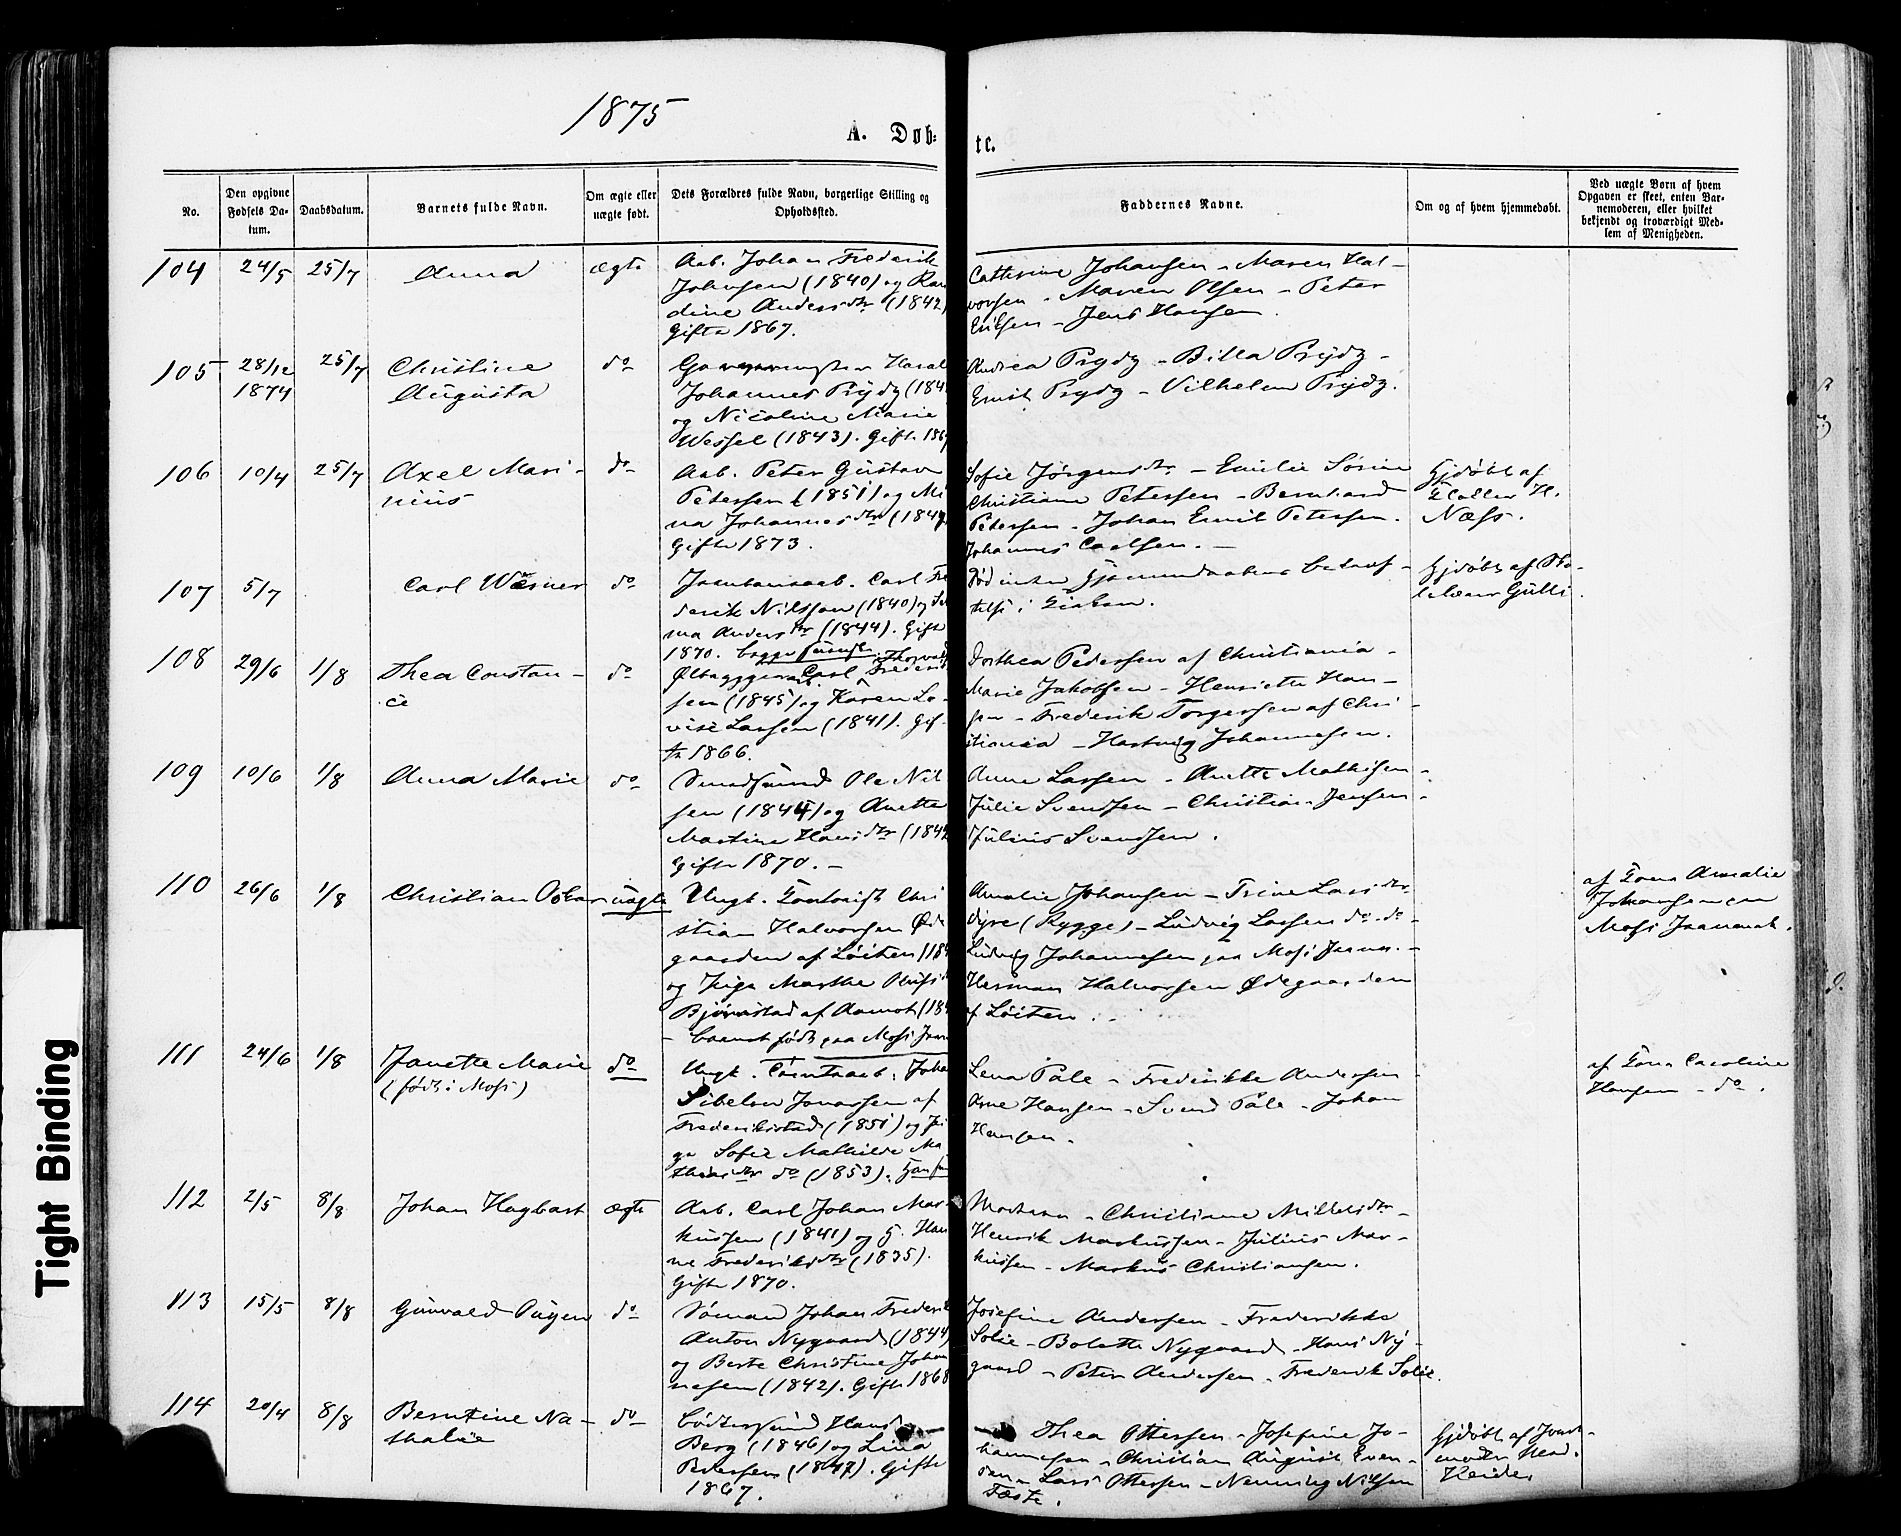 1875
A. Døb-
te.
No.
Den opgivne
Fødsels Da-
tum.
Daabsdatum.
Barnets fulde Navn.
Om ægte eller
uægte født.
Dets Forældres fulde Navn, borgerlige Stilling og
Opholdssted.
Faddernes Navne.
Om og af hvem hjemmedøbt.
Ved uægte Børn af hvem
Opgaven er skeet, enten Bar-
nemoderen, eller hvilket
bekjendt og troværdigt Med-
lem af Menigheden.
104 24/5 25/7 Anna ægte
Arb. Johan Frederik
Johnsen (1840) og Ran
dine Andersdtr (1842)
Gifte 1867.
Cathrine Johansen - Maren Hal-
vorsen - Maren Olsen - Peter
Eriksen - Jens Hansen.
105 28/12 1874 25/7 Christine
Augusta do
Harald
Johannes Prydz (184
og Nicoline Marie
Wessel (1843). Gifte 186
Andrea Prydz - Billa Prydz -
Emil Prydz - Vilhelm Prydz.
106 10/4 25/7 Axel Mari-
nius do
Arb. Peter Gustav
Petersen (1851) og Mi
na Johannesdtr (184
Gifte 1873.
Sofie Jørgensdtr - Emilie Sørine
Christiane Petersen - Bernhard
Petersen - Johan Emil Petersen.
Johannes Carlsen. -
Hjdøbt af
H.
Næss.
107 5/7 Carl Werner do
Carl Fre
derik Nilsson (1840) og
ma Andersdtr (1844). Gift
1870. begge
Død inden
i Kirken.
Hjdøbt af
Gulli.
108 29/6 1/8 Thea Constan-
ce do
Ølbrygger Carl Thorvald Frederik
sen (1845) og Karen Lo-
vise Larsen (1841). Gif-
te 1866.
Dorthea Pedersen af Christiania -
Marie Jakobsen - Henriette Han-
sen - Frederik Torgersen af Chri-
stiania - Hartvig Johannesen.
109 10/6 1/8 Anna Marie do
Smedsvend Ole Nil
sen (1844) og Anette
Martine Hansdtr (184
Gifte 1870. -
Anne Larsen - Anette Mathisen -
Julie Svendsen - Christian Jensen -
Julius Svendsen.
110 26/6 1/8 Christian Oskar uægte
Ungk. Chri
stian Halvorsen Øde
gaarden af Løiten (184
og Pige Marthe
Bjørnstad af Aamot (184
barnet født paa Moss
Amalie Johansen - Trine Larsdtr
Dyre (Rygge) - Ludvig Larsen do - do -
Ludvig Johannesen paa Moss -
Herman Halvorsen Ødegaarden
af Løiten.
af Amalie
Johansen paa
Moss
111 24/6 1/8 Janette Marie
(født i Moss) do
Ungk. Johan
Sibelon Jonassen af
Frederikstad (1851) og Pi
ge Sofie Mathilde Ma
thiasdtr do (1853).
Lena Pale - Frederikke Andersen -
Arne Hansen - Svend Pale - Johan
Hansen.
af Caroline
Hansen - do.
112 2/5 8/8 Johan Hagbart ægte
Arb. Carl Johan Mar-
kussen (1841) og H. Han
ne Frederiksdtr (1835).
Gifte 1870.
Moderen - Christiane Mikkelsdtr -
Henrik Markussen - Julius Mar-
kussen - Markus Christiansen.
113 15/5 8/8 Gunvald Pugen do
Sømand Johan Frederik
Anton Nygaard (1844)
og Berte Christine Johan
nesen (1842). Gifte 1868
Josefine Andersen - Frederikke
Solie - Bolette Nygaard - Hans Ny-
gaard - Peter Andersen - Frederik Solie.
114 20/4 8/8 Berntine Na-
thalie do
Bødtersvend Hans
Berg (1846) og Lina
Pedersen (1847). Gifte
1867.
Thea Ottersen - Josefine Jo-
hannesen - Christian August Even-
sen - Lars Ottersen - Nenning Nilsen
Fæste.
Hjdøbt af Jord-
moder Mad.
Heide.
Tight Binding